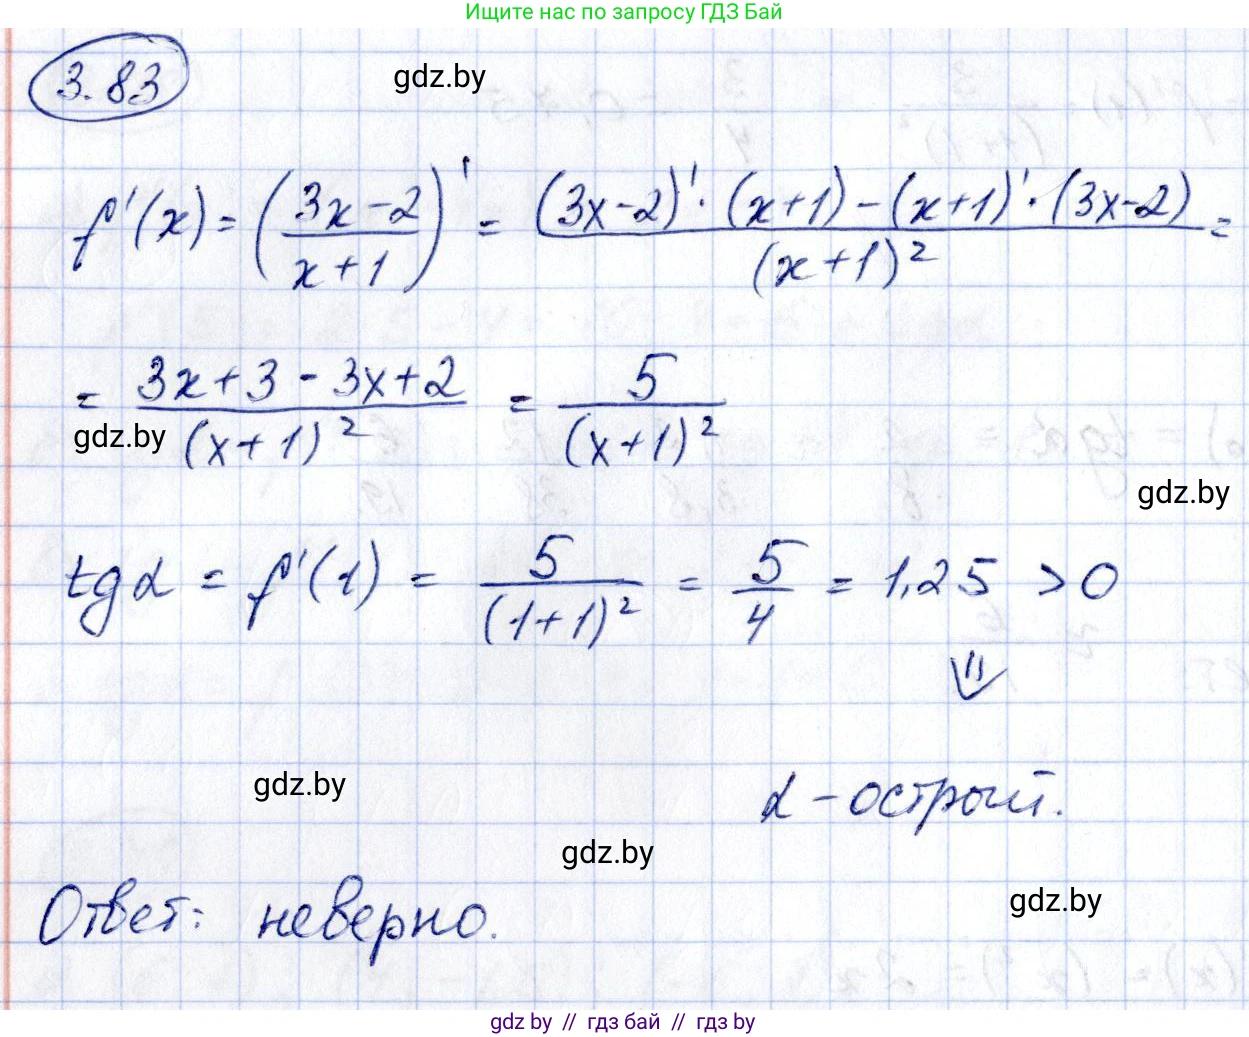 Ищите нас по запросу ГДЗ Бай
3.83
gdz.by
f'(x) = ((3x-2)/(x+1))' = ((3x-2)'·(x+1)-(x+1)'·(3x-2))/(x+1)² =
= (3x+3-3x+2)/(x+1)² = 5/(x+1)²
gdz.by
gdz.by
tgα = f'(1) = 5/(1+1)² = 5/4 = 1,25 >0
⇓
gdz.by
α - острый.
gdz.by
gdz.by
Ответ: неверно.
gdz by // гдз бай // гдз by